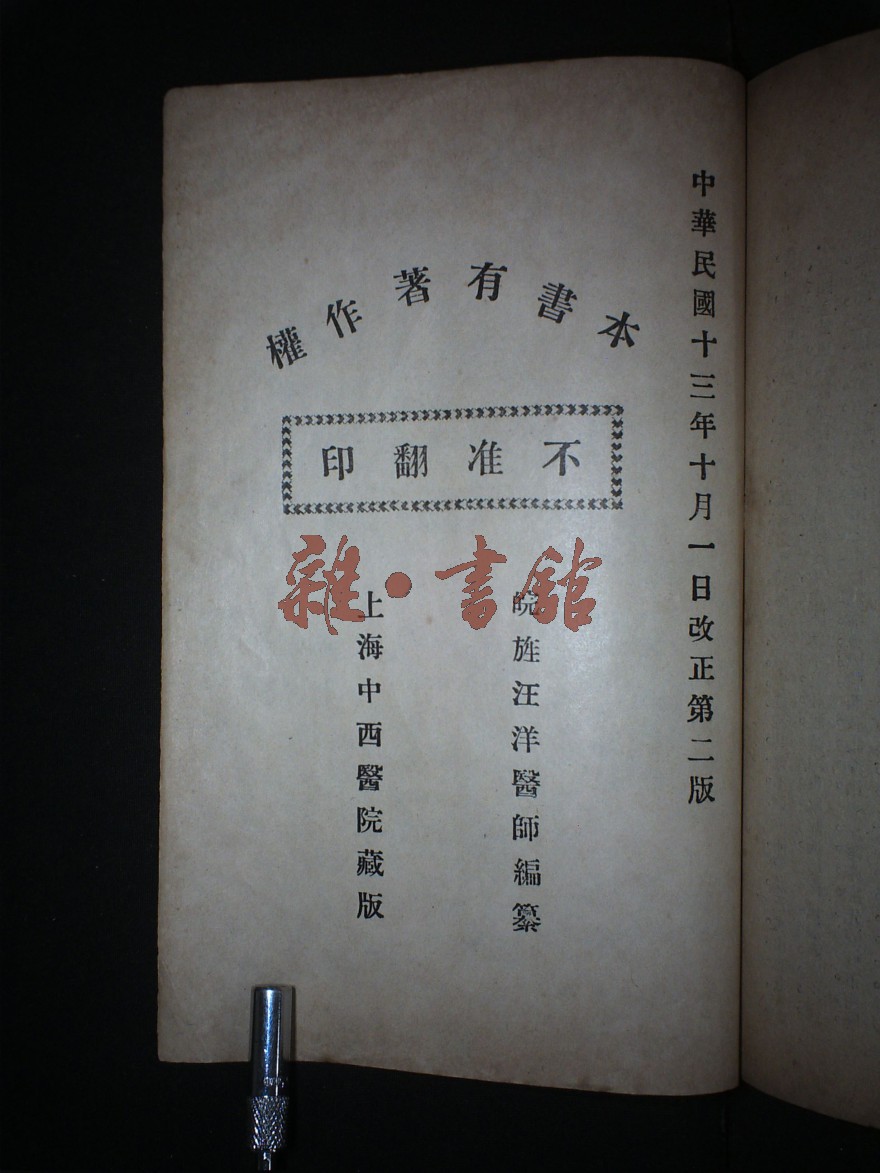 中華民國十三年十月一日改正第二版
本書有著作權
不准翻印
皖旌汪洋醫師編纂
上海中西醫院藏版
雜·書館